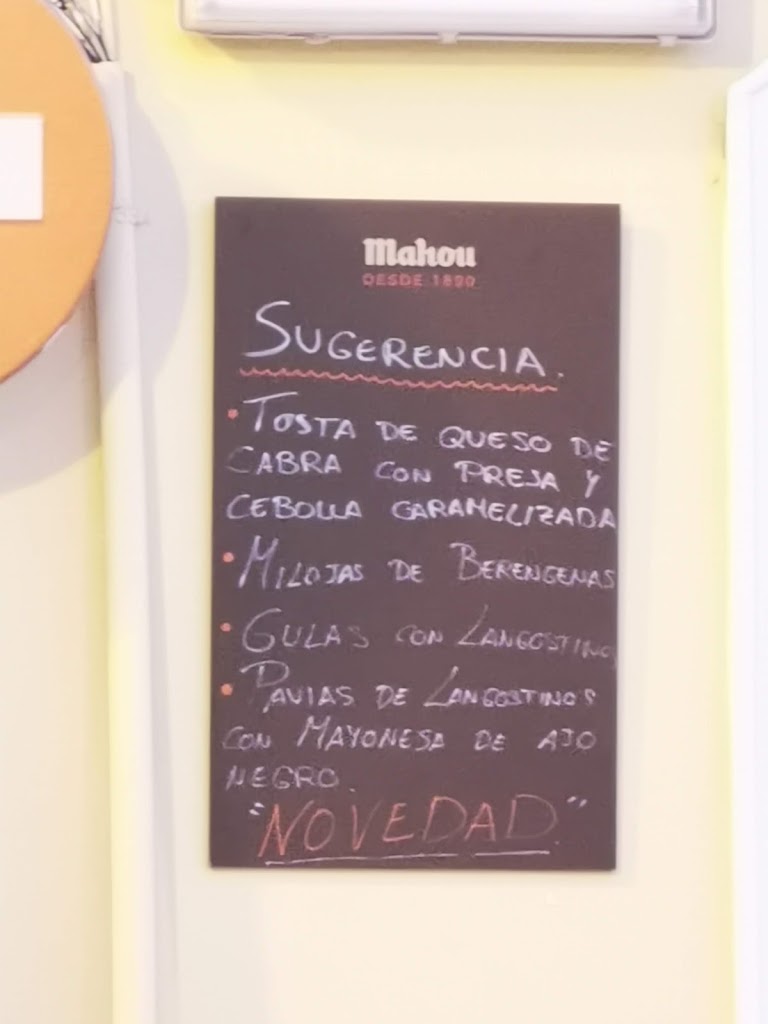 Mahou
DESDE 1890
SUGERENCIA.
• TOSTA DE QUESO DE
CABRA CON PRESA Y
CEBOLLA CARAMELIZADA
• MILOJAS DE BERENGENAS
• GULAS CON LANGOSTINOS
• PAVIAS DE LANGOSTINOS
CON MAYONESA DE AJO
NEGRO.
"NOVEDAD"